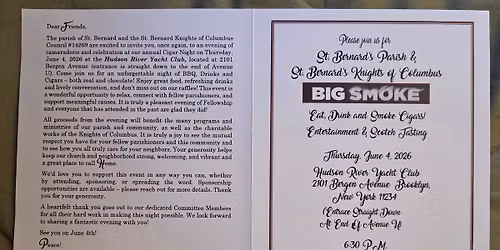 Dear Friends,
The parish of St. Bernard and the St. Bernard Knights of Columbus
Council #14269 are excited to invite you, once again, to an evening of
camaraderie and celebration at our annual Cigar Night on Thursday,
June 4, 2026 at the Hudson River Yacht Club, located at 2101
Bergen Avenue (entrance is straight down to the end of Avenue
U). Come join us for an unforgettable night of BBQ, Drinks and
Cigars – both real and chocolate! Enjoy great food, refreshing drinks
and lively conversation, and don't miss out on our raffles! This event is
a wonderful opportunity to relax, connect with fellow parishioners, and
support meaningful causes. It is truly a pleasant evening of Fellowship
and everyone that has attended in the past are glad they did!
All proceeds from the evening will benefit the many programs and
ministries of our parish and community, as well as the charitable
works of the Knights of Columbus. It is truly a joy to see the mutual
respect you have for your fellow parishioners and this community and
to see how you all truly care for your neighbors. Your generosity helps
keep our church and neighborhood strong, welcoming, and vibrant and
a great place to call Home.
We'd love you to support this event in any way you can, whether
by attending, sponsoring, or spreading the word. Sponsorship
opportunities are available – please reach out for more details. Thank
you for your generosity.
A heartfelt thank you goes out to our dedicated Committee Members
for all their hard work in making this night possible. We look forward
to sharing a fantastic evening with you!
See you on June 4th!
Peace!
Please join us for
St. Bernard's Parish &
St. Bernard's Knights of Columbus
BIG SMOKE
Eat, Drink and Smoke Cigars!
Entertainment & Scotch Tasting
Thursday, June 4, 2026
Hudson River Yacht Club
2101 Bergen Avenue Brooklyn,
New York 11234
(Entrance Straight Down
At End Of Avenue U)
6:30 P.M.